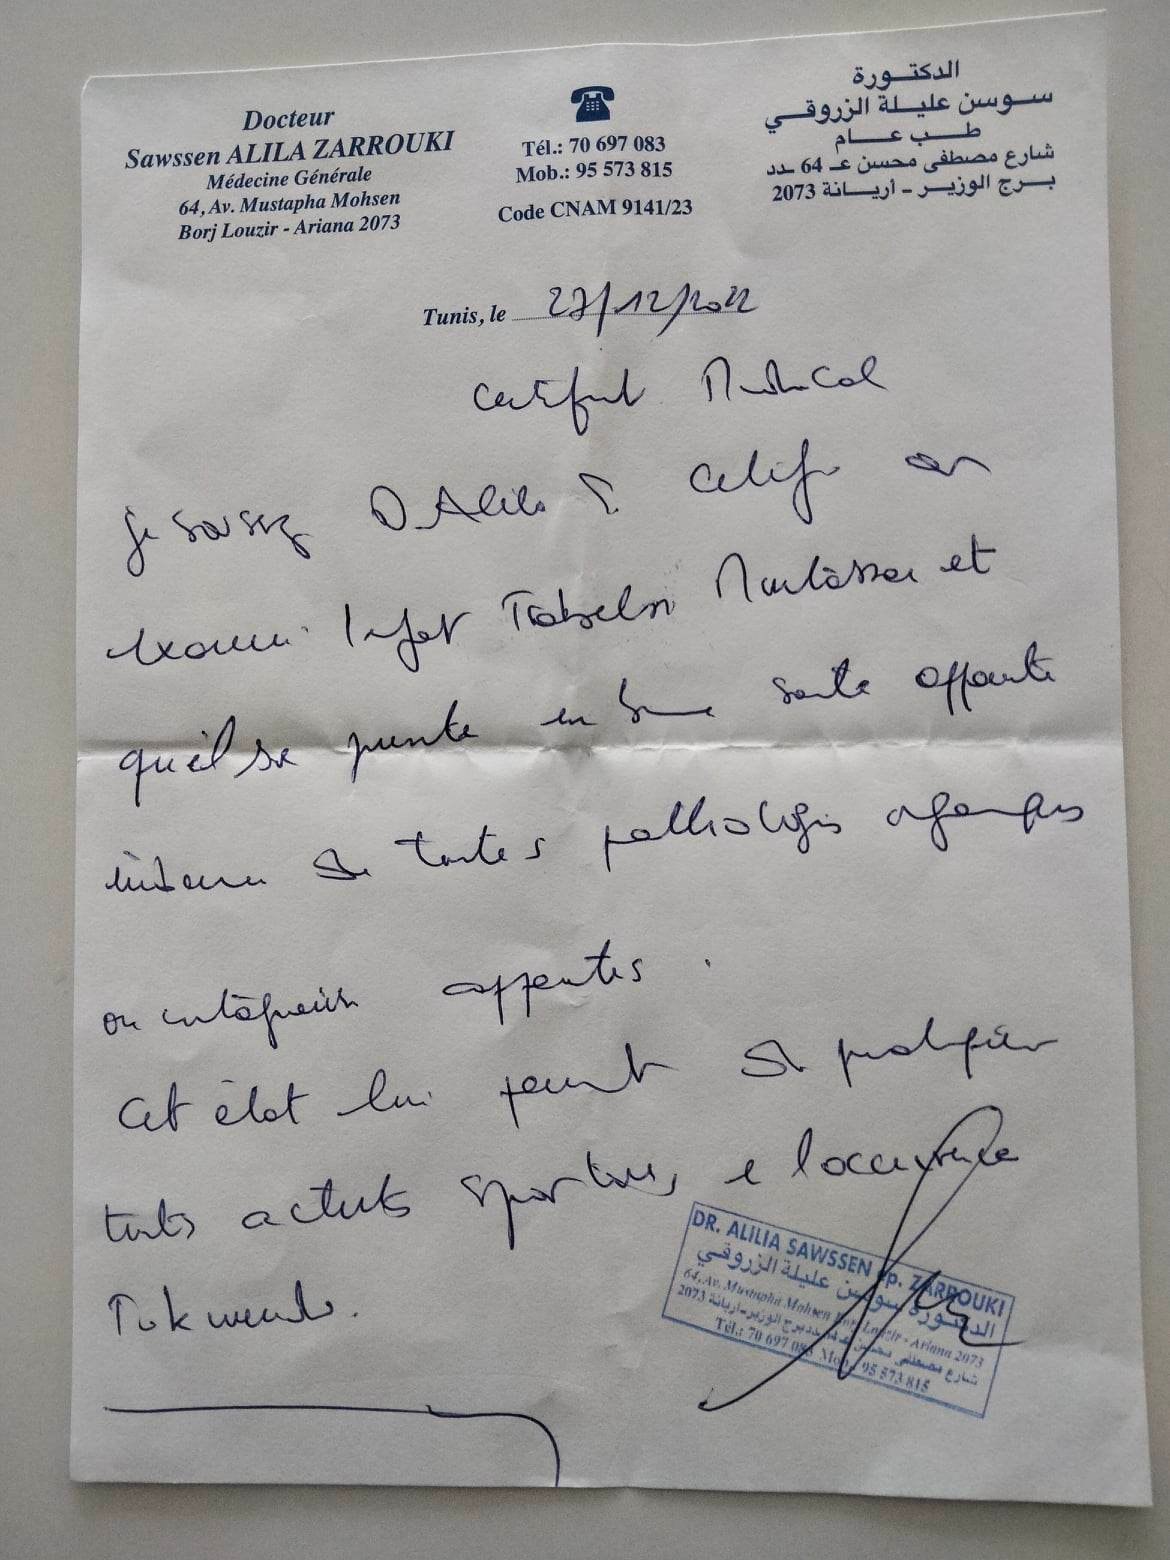 Docteur
Sawssen ALILA ZARROUKI
Médecine Générale
64, Av. Mustapha Mohsen
Borj Louzir - Ariana 2073
Tél.: 70 697 083
Mob.: 95 573 815
Code CNAM 9141/23
الدكتورة
سوسن عليلة الزروقي
طب عام
شارع مصطفى محسن عـ 64 ـدد
برج الوزير - أريانة 2073
Tunis, le 27/12/2022
Certificat Médical
Je soussigné D. Alila S. certifie avoir
examiné l'enfant Trabelsi et
qu'il se présente en bonne santé apparente
indemne de toutes pathologies organiques
ou apparentes.
Cet état lui permet de pratiquer
toutes activités sportives, l'occurrence
DR. ALILIA SAWSSEN ep. ZARROUKI
الدكتورة سوسن عليلة الزروقي
64, Av. Mustapha Mohsen Borj Louzir - Ariana 2073
شارع مصطفى محسن برج الوزير - أريانة 2073
Tél.: 70 697 083 Mob.: 95 573 815